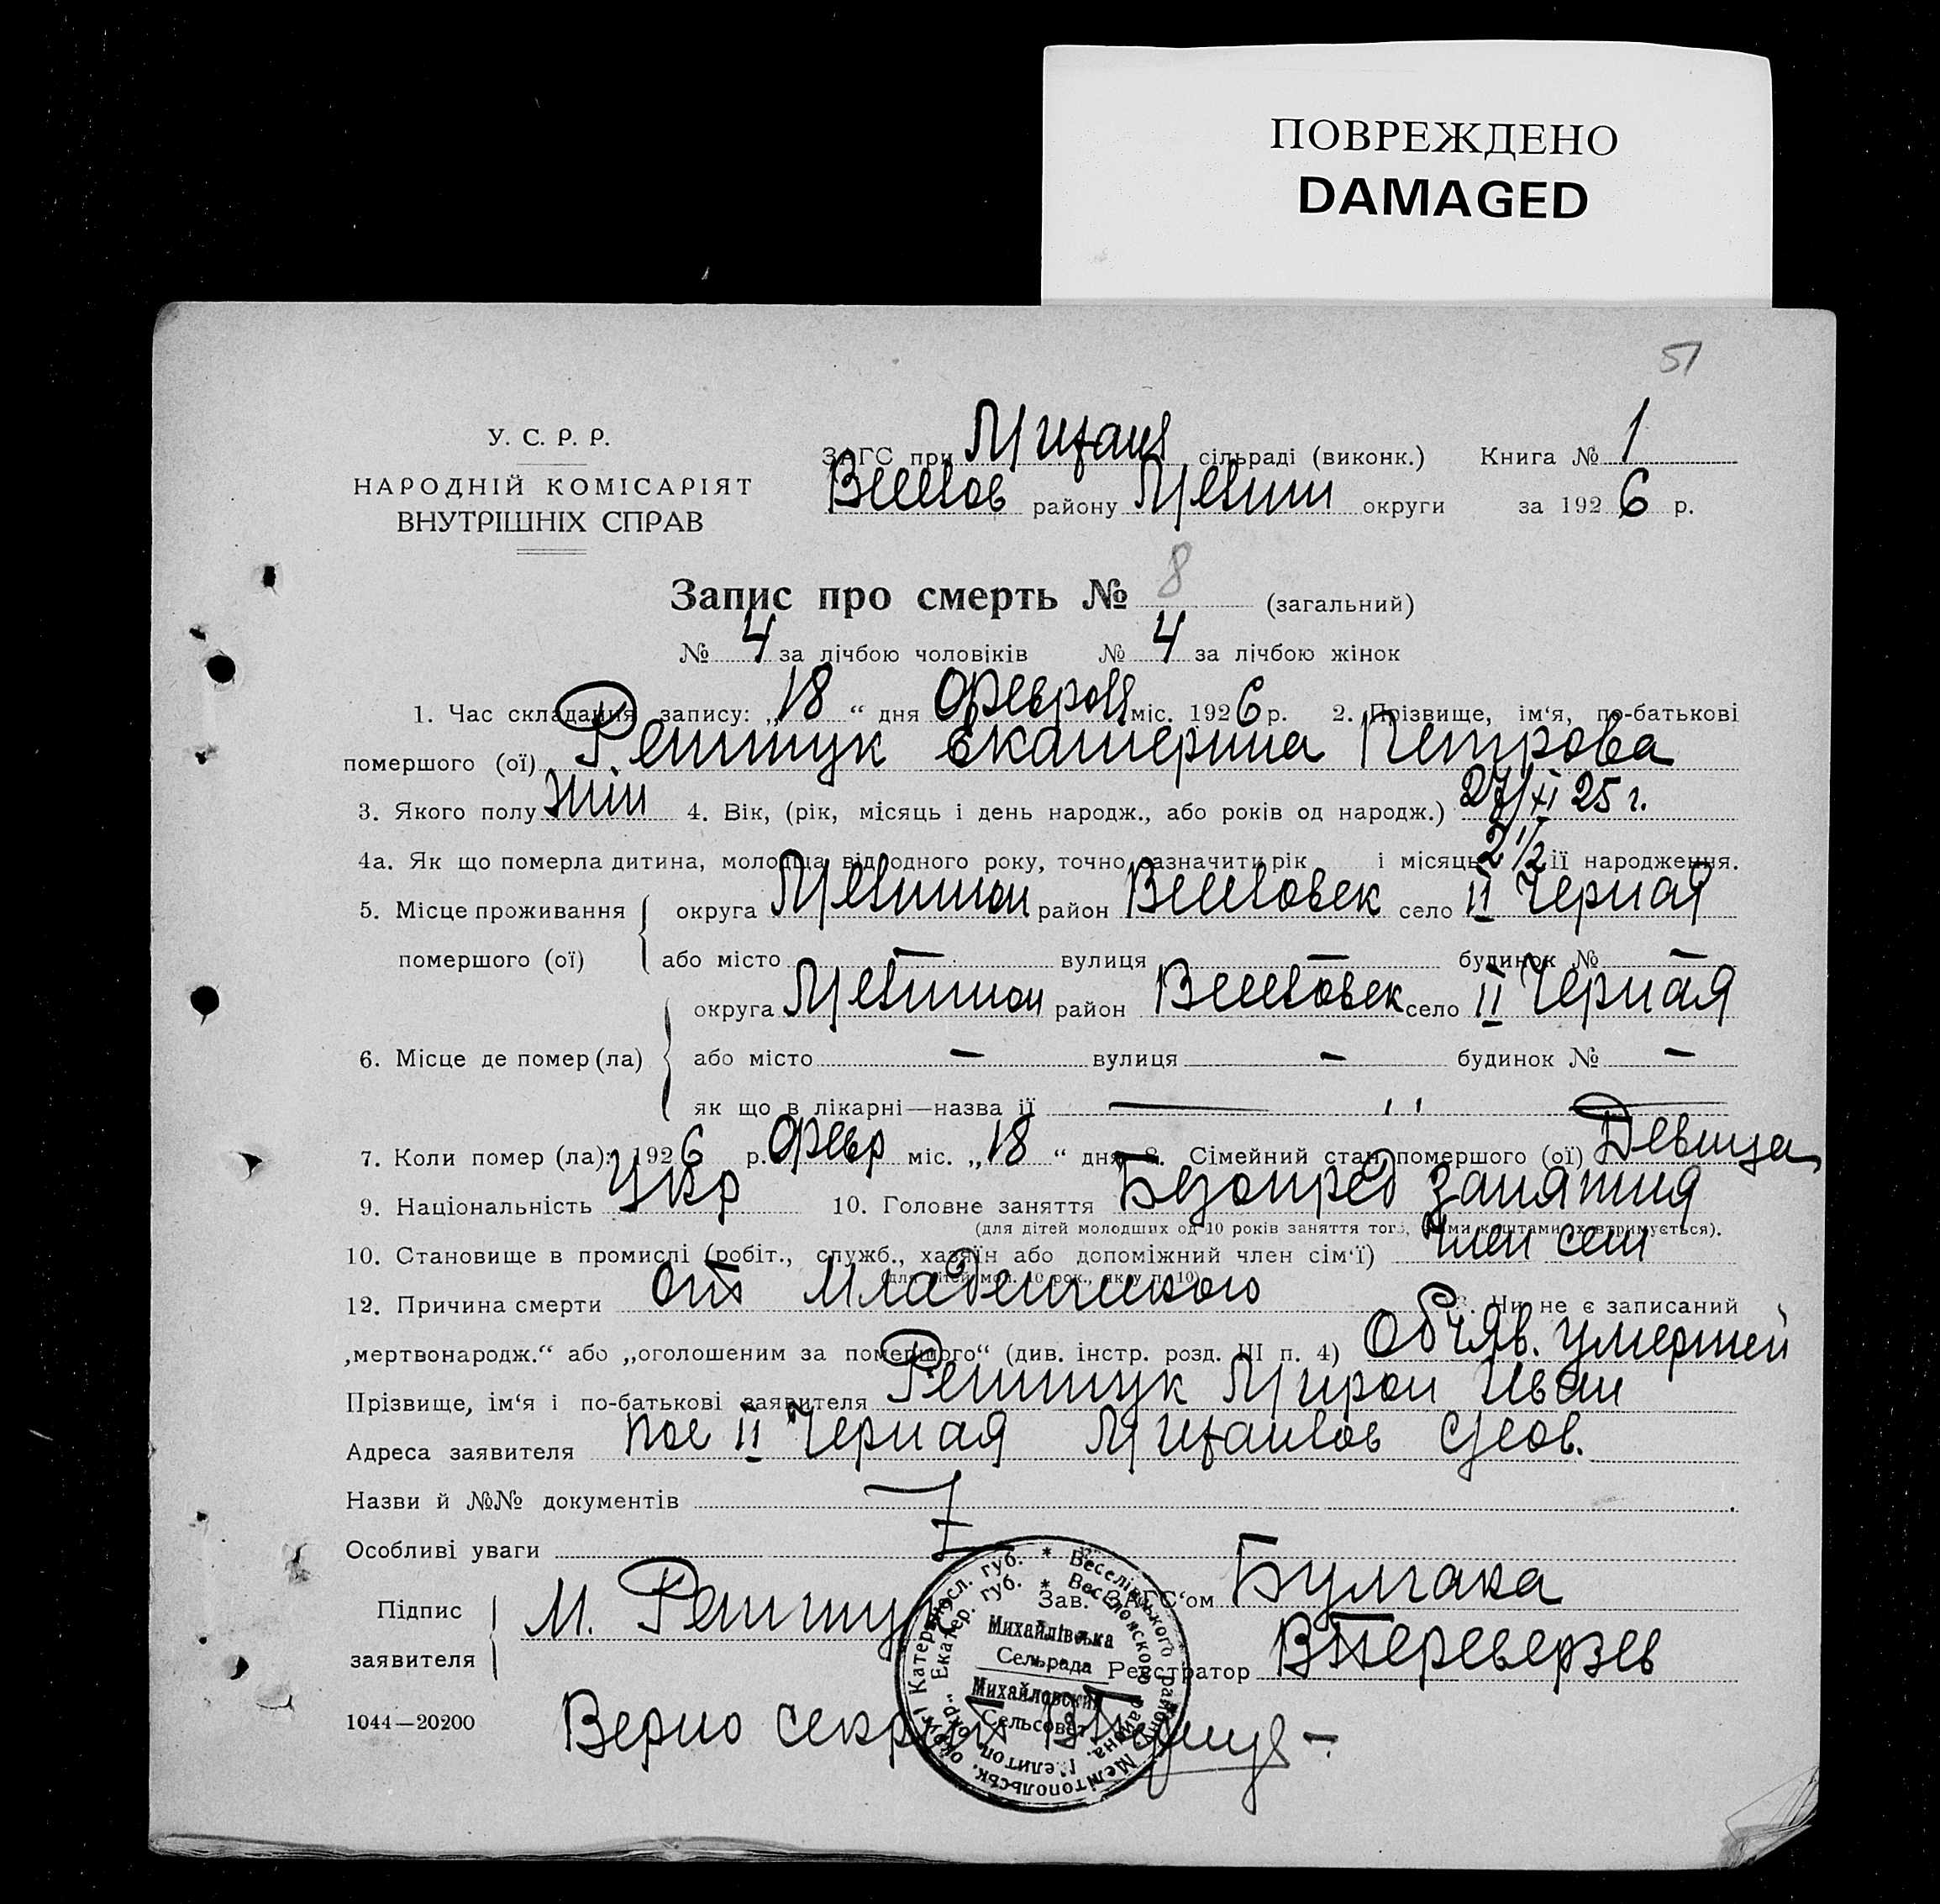 ПОВРЕЖДЕНО
DAMAGED
51
У. С. Р. Р.
НАРОДНІЙ КОМІСАРІЯТ
ВНУТРІШНІХ СПРАВ
ЗАГС при Михайл сільраді (виконк.) Книга № 1
Веселов району Мелитоп округи за 1926 р.
Запис про смерть № 8 (загальний)
№ 4 за лічбою чоловіків № 4 за лічбою жінок
1. Час складання запису: „18“ дня февраля міс. 1926 р. 2. Прізвище, ім‘я, по-батькові
помершого (ої) Екатерина Петрова
3. Якого полу жін 4. Вік, (рік, місяць і день народж., або років од народж.) 27/XI 25 г.
4а. Як що померла дитина, молодша від одного року, точно зазначити рік і місяць 2 1/2 її народження.
5. Місце проживання округа Мелитоп район село II Черная
помершого (ої) або місто — вулиця — будинок № —
округа Мелитоп район село II Черная
6. Місце де помер (ла) або місто — вулиця — будинок № —
як що в лікарні—назва її
7. Коли помер (ла): 1926 р. февр міс. „18“ дня 8. Сімейний стан помершого (ої) Девица
9. Національність Укр 10. Головне заняття Безопред занятия
(для дітей молодших од 10 років заняття того, чиїми коштами їх втримується).
10. Становище в промислі (робіт., служб., хазяїн або допоміжний член сім‘ї) член сем
(для дітей мол. 10 рок., як у п. 10)
12. Причина смерти от Младенческого Чи не є записаний
„мертвонародж.“ або „оголошеним за помершого“ (див. інстр. розд. III п. 4) Объяв. умершей
Прізвище, ім‘я і по-батькові заявителя Мирон Иван
Адреса заявителя пос II Черная Михайлов
Назви й №№ документів
Особливі уваги
Підпис М. Зав. ЗАГС‘ом Булгака
заявителя Реєстратор Переверзев
1044—20200 Верно секрет
Катериносл. губ. * Веселівського району Мелітопольськ. округи
Екатер. губ. * Веселовского района, Мелитоп. окр.
Михайлівська
Сельрада
Михайловский
Сельсовет